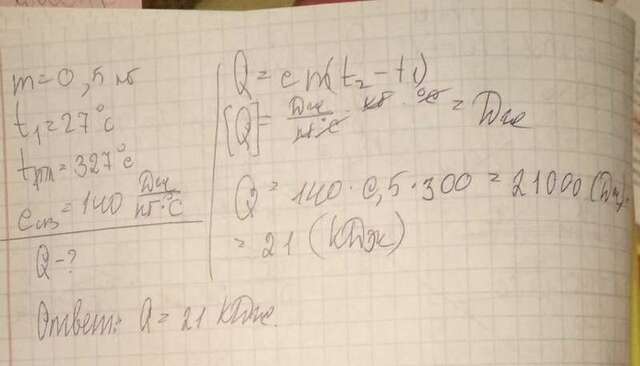 m = 0,5 кг
t₁ = 27°C
tпл = 327°C
cсв = 140 Дж/кг·°C
Q - ?
Q = cm(t₂ - t₁)
[Q] = Дж/кг·°C · кг · °C = Дж
Q = 140 · 0,5 · 300 = 21000 (Дж) =
= 21 (кДж)
Ответ: Q = 21 кДж.